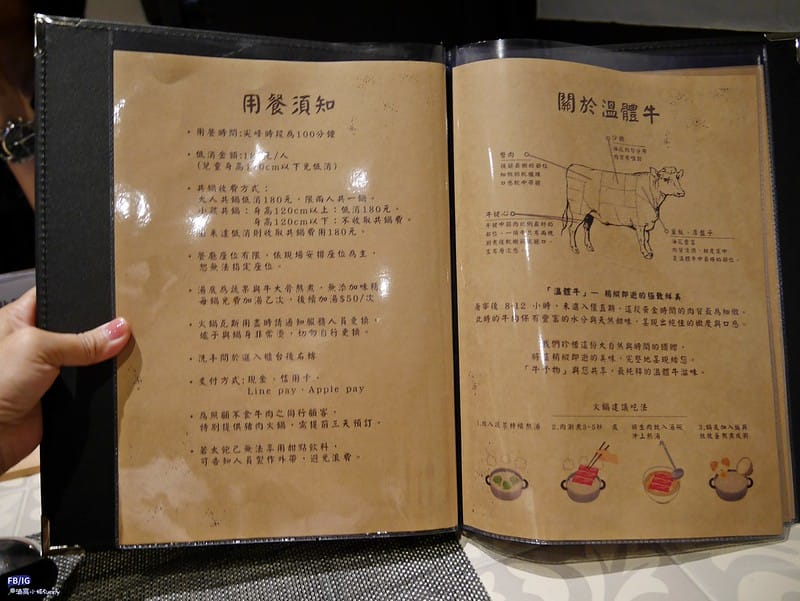 用餐須知
・用餐時間:尖峰時段為100分鐘
・低消金額:180元/人
(兒童身高120cm以下免低消)
・共鍋收費方式:
大人共鍋低消180元，限兩人共一鍋。
小孩共鍋:身高120cm以上:低消180元。
身高120cm以下:不收取共鍋費。
如未達低消則收取共鍋費用180元。
・餐廳座位有限，依現場安排座位為主，
恕無法指定座位。
・湯底為蔬果與牛大骨熬煮，無添加味精
每鍋免費加湯乙次，後續加湯$50/次
・火鍋瓦斯用盡時請通知服務人員更換，
爐子與鍋身非常燙，切勿自行更換。
・洗手間於進入櫃台後右轉
・支付方式:現金、信用卡、
Line pay、Apple pay
・為照顧不食牛肉之同行顧客，
特別提供豬肉火鍋，需提前三天預訂。
・若太飽已無法享用甜點飲料，
可告知人員製作外帶，避免浪費。
關於溫體牛
臀肉
牛腱
「溫體牛」— 稍縱即逝的極致鮮美
身宰後 8-12 小時，未進入僵直期，這段黃金時間的肉質最為細緻。
此時的牛肉保有豐富的水分與天然鮮味，呈現出絕佳的嫩度與口感。
我們珍惜這份大自然與時間的饋贈，
將這稍縱即逝的美味，完整地呈現給您。
「牛予物」與您共享，最純粹的溫體牛滋味。
火鍋建議吃法
1.放入蔬菜待續熱湯
2.肉涮煮3~5秒 或
將生肉放入湯碗
沖上熱湯
FB/IG